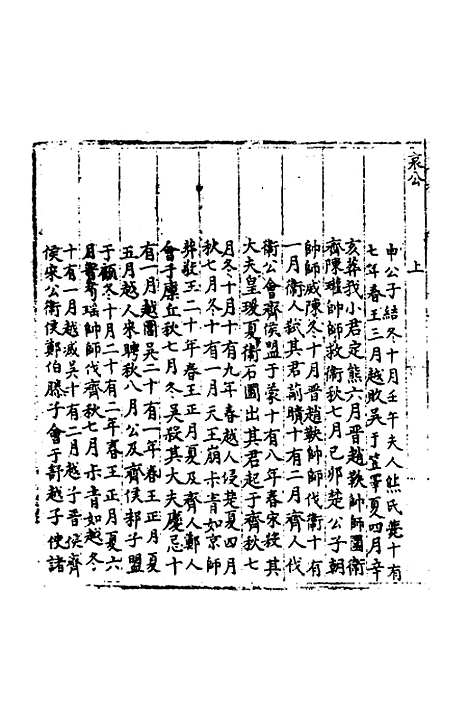 哀公
上
申公子結冬十月壬午夫人熊氏薨十有
七年春王三月越敗吳于笠澤夏四月辛
亥葬我小君定熊六月晉趙鞅帥師圍衛
齊陳瓘帥師救衛秋七月己卯楚公子朝
帥師滅陳冬十月晉趙鞅帥師伐衛十有
一月衛人弑其君蒯聵十有二月齊人伐
衛公會齊侯盟于蒙十有八年春宋殺其
大夫皇瑗夏衛石圃出其君起于齊秋七
月冬十月十有九年春越人侵楚夏四月
秋七月冬十有一月天王崩叔青如京師
葬敬王二十年春王正月夏及齊鄭人
會于廩丘秋七月冬吳殺其大夫慶忌十
有一月越圍吳二十有一年春王正月夏
五月越人來聘秋八月公及齊侯邾子盟
于顧冬十月二十有二年春王正月夏六
月晉荀瑤帥師伐齊秋七月叔青如越冬
十有一月越滅吳十有二月越子晉侯齊
侯宋公衛侯鄭伯滕子會于舒越子使諸